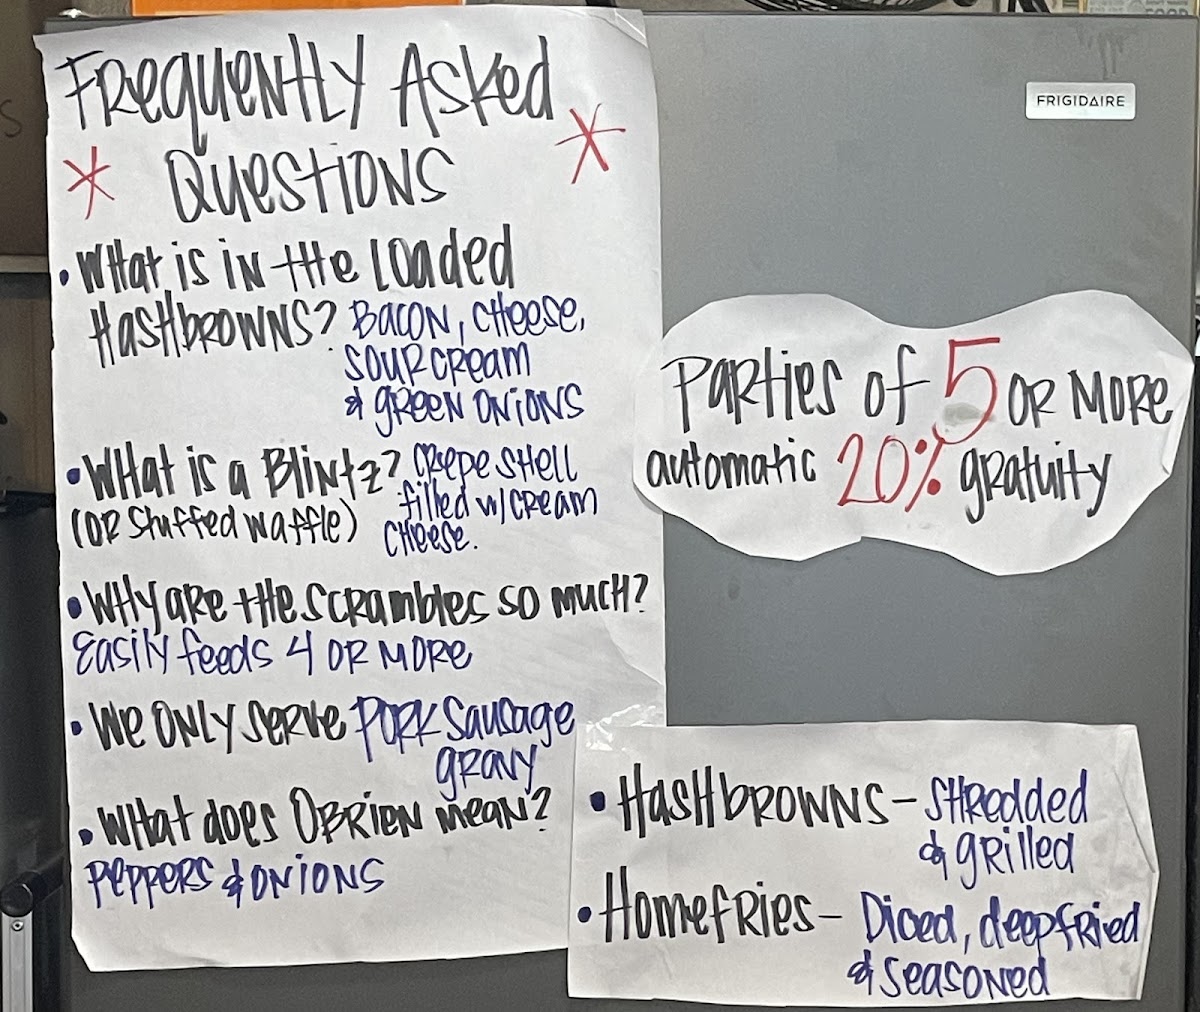 Frequently Asked
* Questions *
• What is in the Loaded
Hashbrowns? Bacon, cheese,
sour cream
& green onions
• What is a Blintz? Crepe shell
(or stuffed waffle) filled w/ cream
cheese.
• Why are the scrambles so much?
Easily feeds 4 or more
• We only serve pork sausage
gravy
• What does OBrien mean?
peppers & onions
FRIGIDAIRE
Parties of 5 or more
automatic 20% gratuity
• Hashbrowns - shredded
& grilled
• Homefries - Diced, deepfried
& seasoned